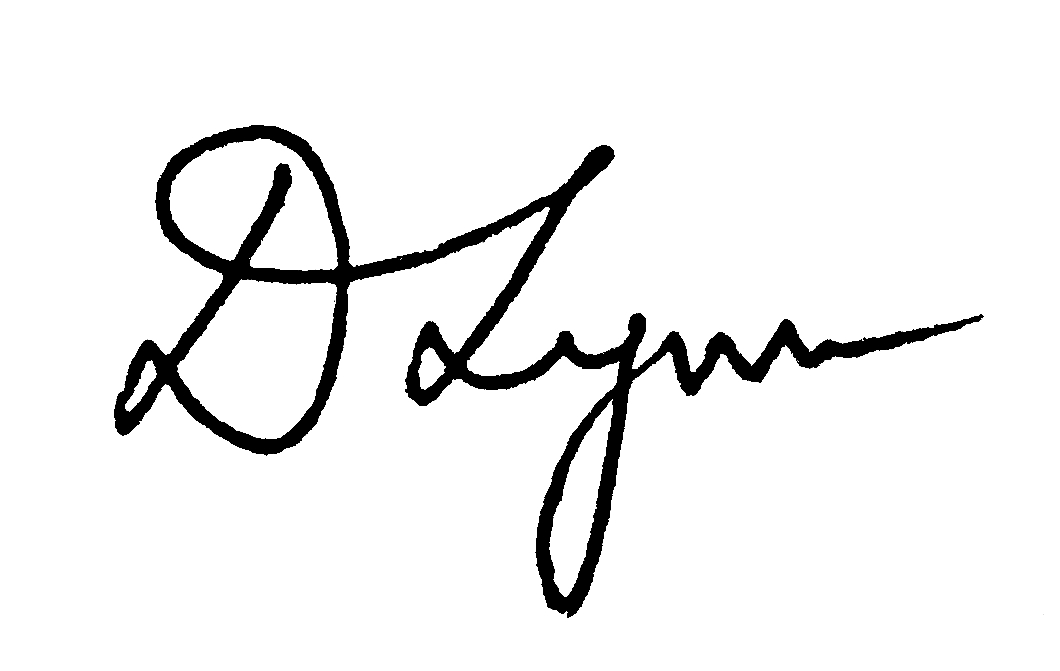 D Lynn